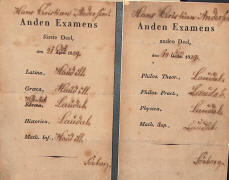 Hans Christian Andersen
Anden Examens
første Deel,
den April 1829.
Latina, Haud ill.
Græca, Haud ill.
Hebræa, Laudab.
Historica, Laudab.
Math. Inf., Haud ill.
Hans Christian Andersen
Anden Examens
anden Deel,
den 1829.
Philos. Theor., Laudab.
Philos. Pract., Laudab.
Physica, Laudab.
Math. Sup., Laudab.